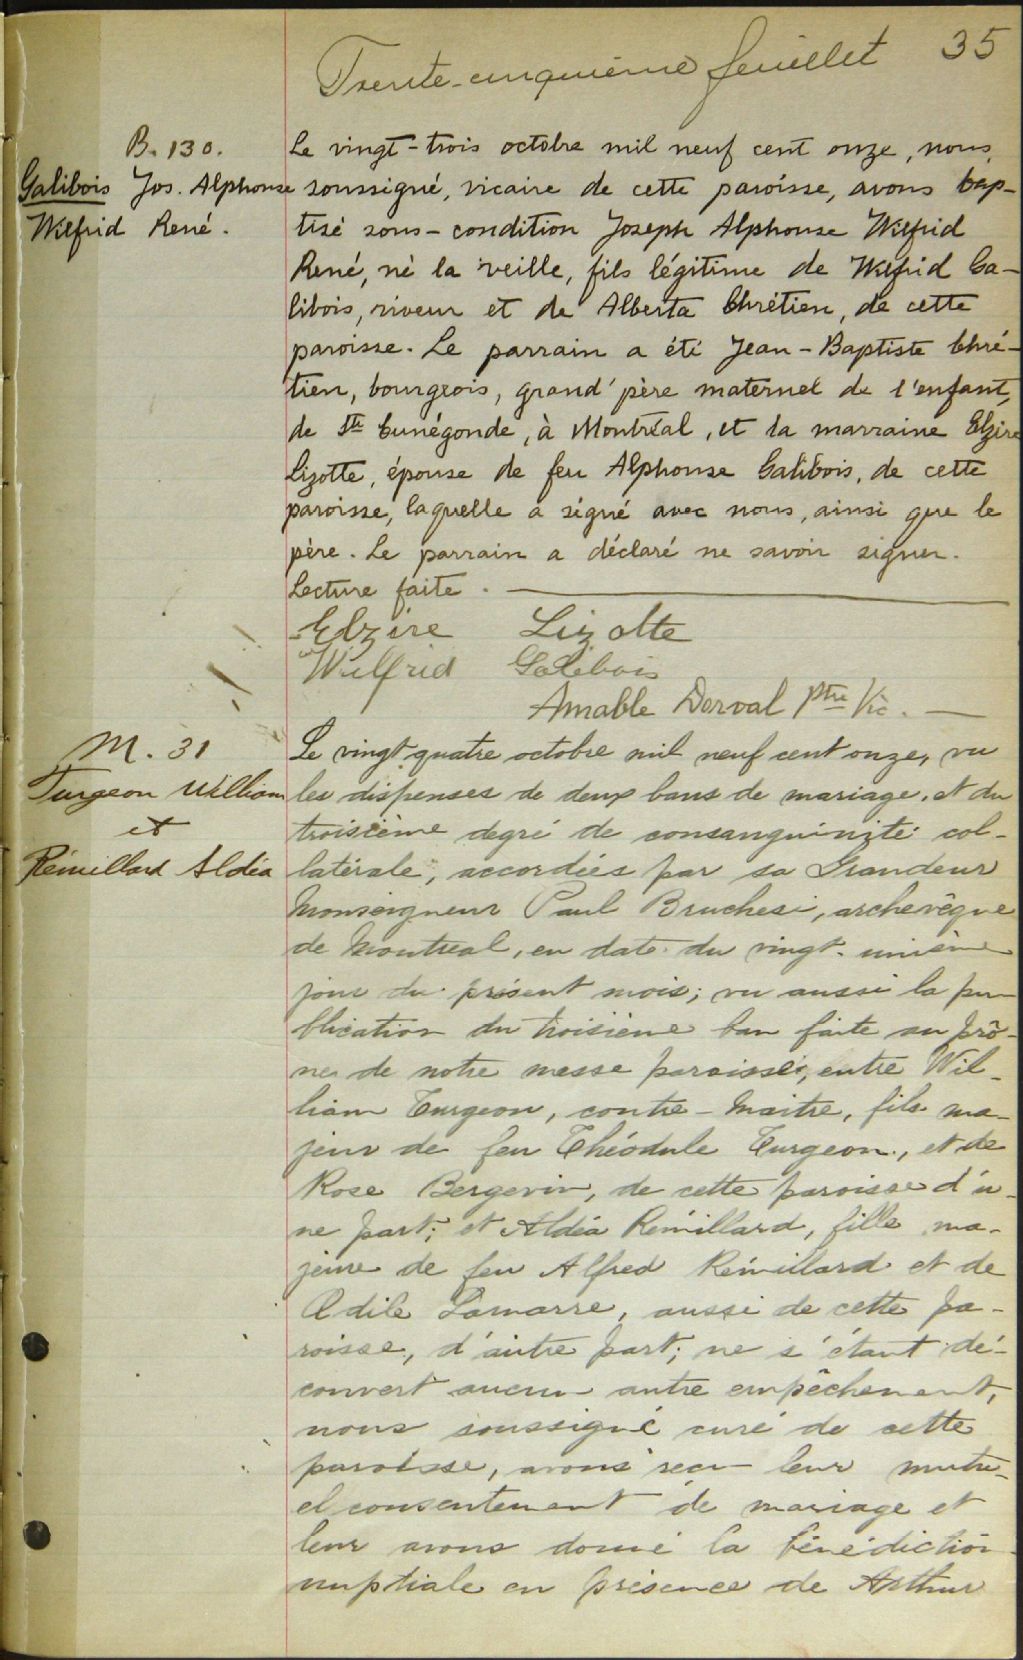 Trente-cinquième feuillet 35
B. 130.
Galibois Jos. Alphonse
Wilfrid René.
Le vingt-trois octobre mil neuf cent onze, nous,
soussigné, vicaire de cette paroisse, avons bap-
tisé sous-condition Joseph Alphonse Wilfrid
René, né la veille, fils légitime de Wilfrid Ga-
libois, riveur et de Alberta Chrétien, de cette
paroisse. Le parrain a été Jean-Baptiste Chré-
tien, bourgeois, grand'père maternel de l'enfant,
de Ste Cunégonde, à Montréal, et la marraine Elzire
Lizotte, épouse de feu Alphonse Galibois, de cette
paroisse, laquelle a signé avec nous, ainsi que le
père. Le parrain a déclaré ne savoir signer.
Lecture faite.
Elzire Lizotte
Wilfrid Galibois
Amable Dorval Ptre Vic.
M. 31
Turgeon William
et
Rémillard Aldéa
Le vingt-quatre octobre mil neuf cent onze, vu
les dispenses de deux bans de mariage, et du
troisième degré de consanguinité col-
latérale, accordées par sa Grandeur
Monseigneur Paul Bruchesi, archevêque
de Montreal, en date du vingt-unième
jour du présent mois; vu aussi la pu
blication du troisième ban faite au prô-
ne de notre messe paroissle, entre Wil-
liam Turgeon, contre-maitre, fils ma-
jeur de feu Théodule Turgeon, et de
Rose Bergevin, de cette paroisse d'u-
ne part; et Aldéa Rémillard, fille ma-
jeure de feu Alfred Rémillard et de
Odile Lamarre, aussi de cette pa-
roisse, d'autre part; ne s'étant dé-
couvert aucun autre empêchement,
nous soussigné curé de cette
paroisse, avons reçu leur mutu-
el consentement de mariage et
leur avons donné la bénédiction
nuptiale en présence de Arthur